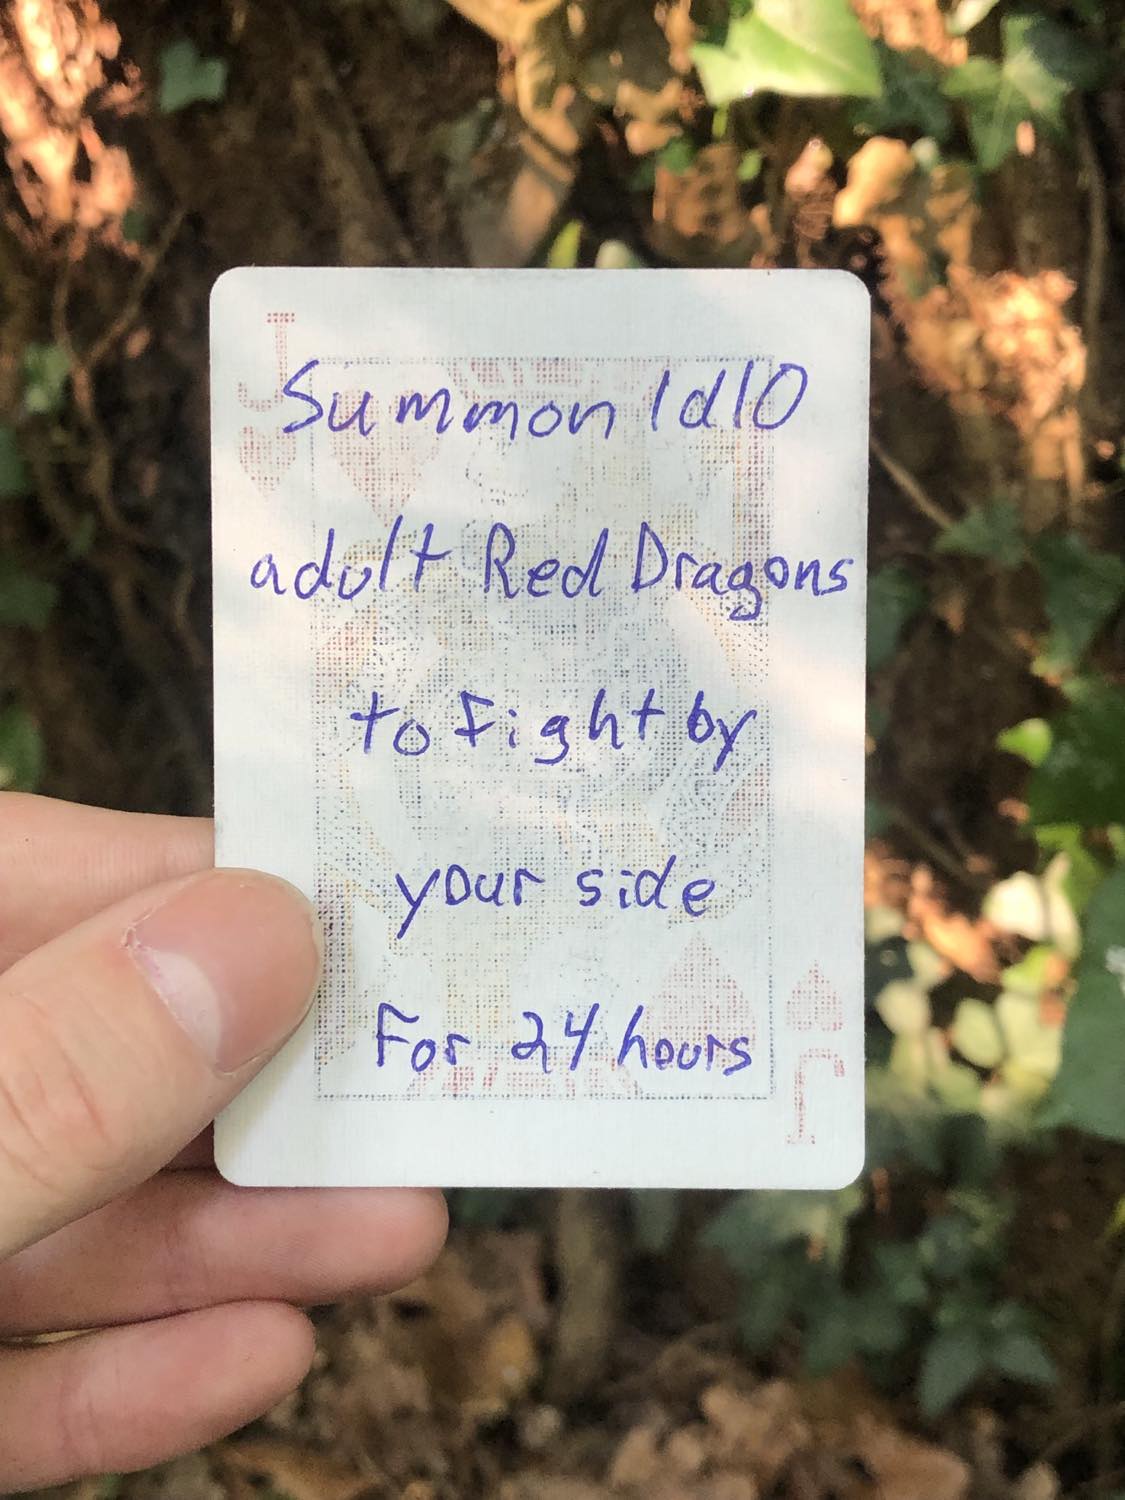 J
Summon 1d10
adult Red Dragons
to Fight by
your side
For 24 hours
J